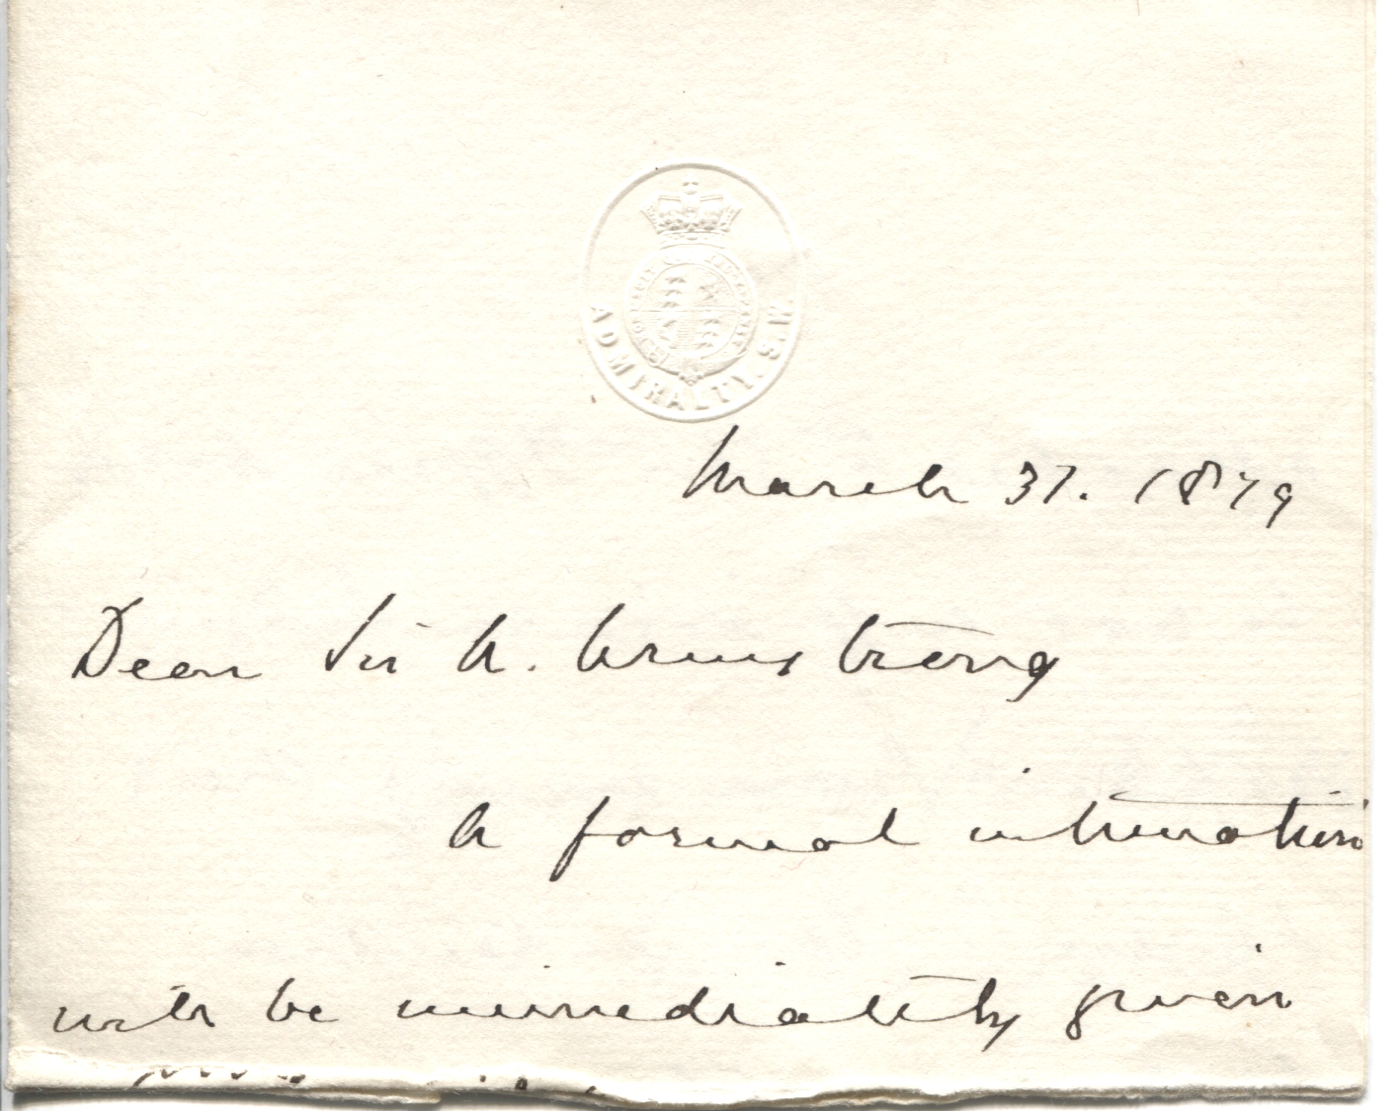 ADMIRALTY. S.W.
March 31. 1879
Dear Sir A. Armstrong
A formal intimation
will be immediately given